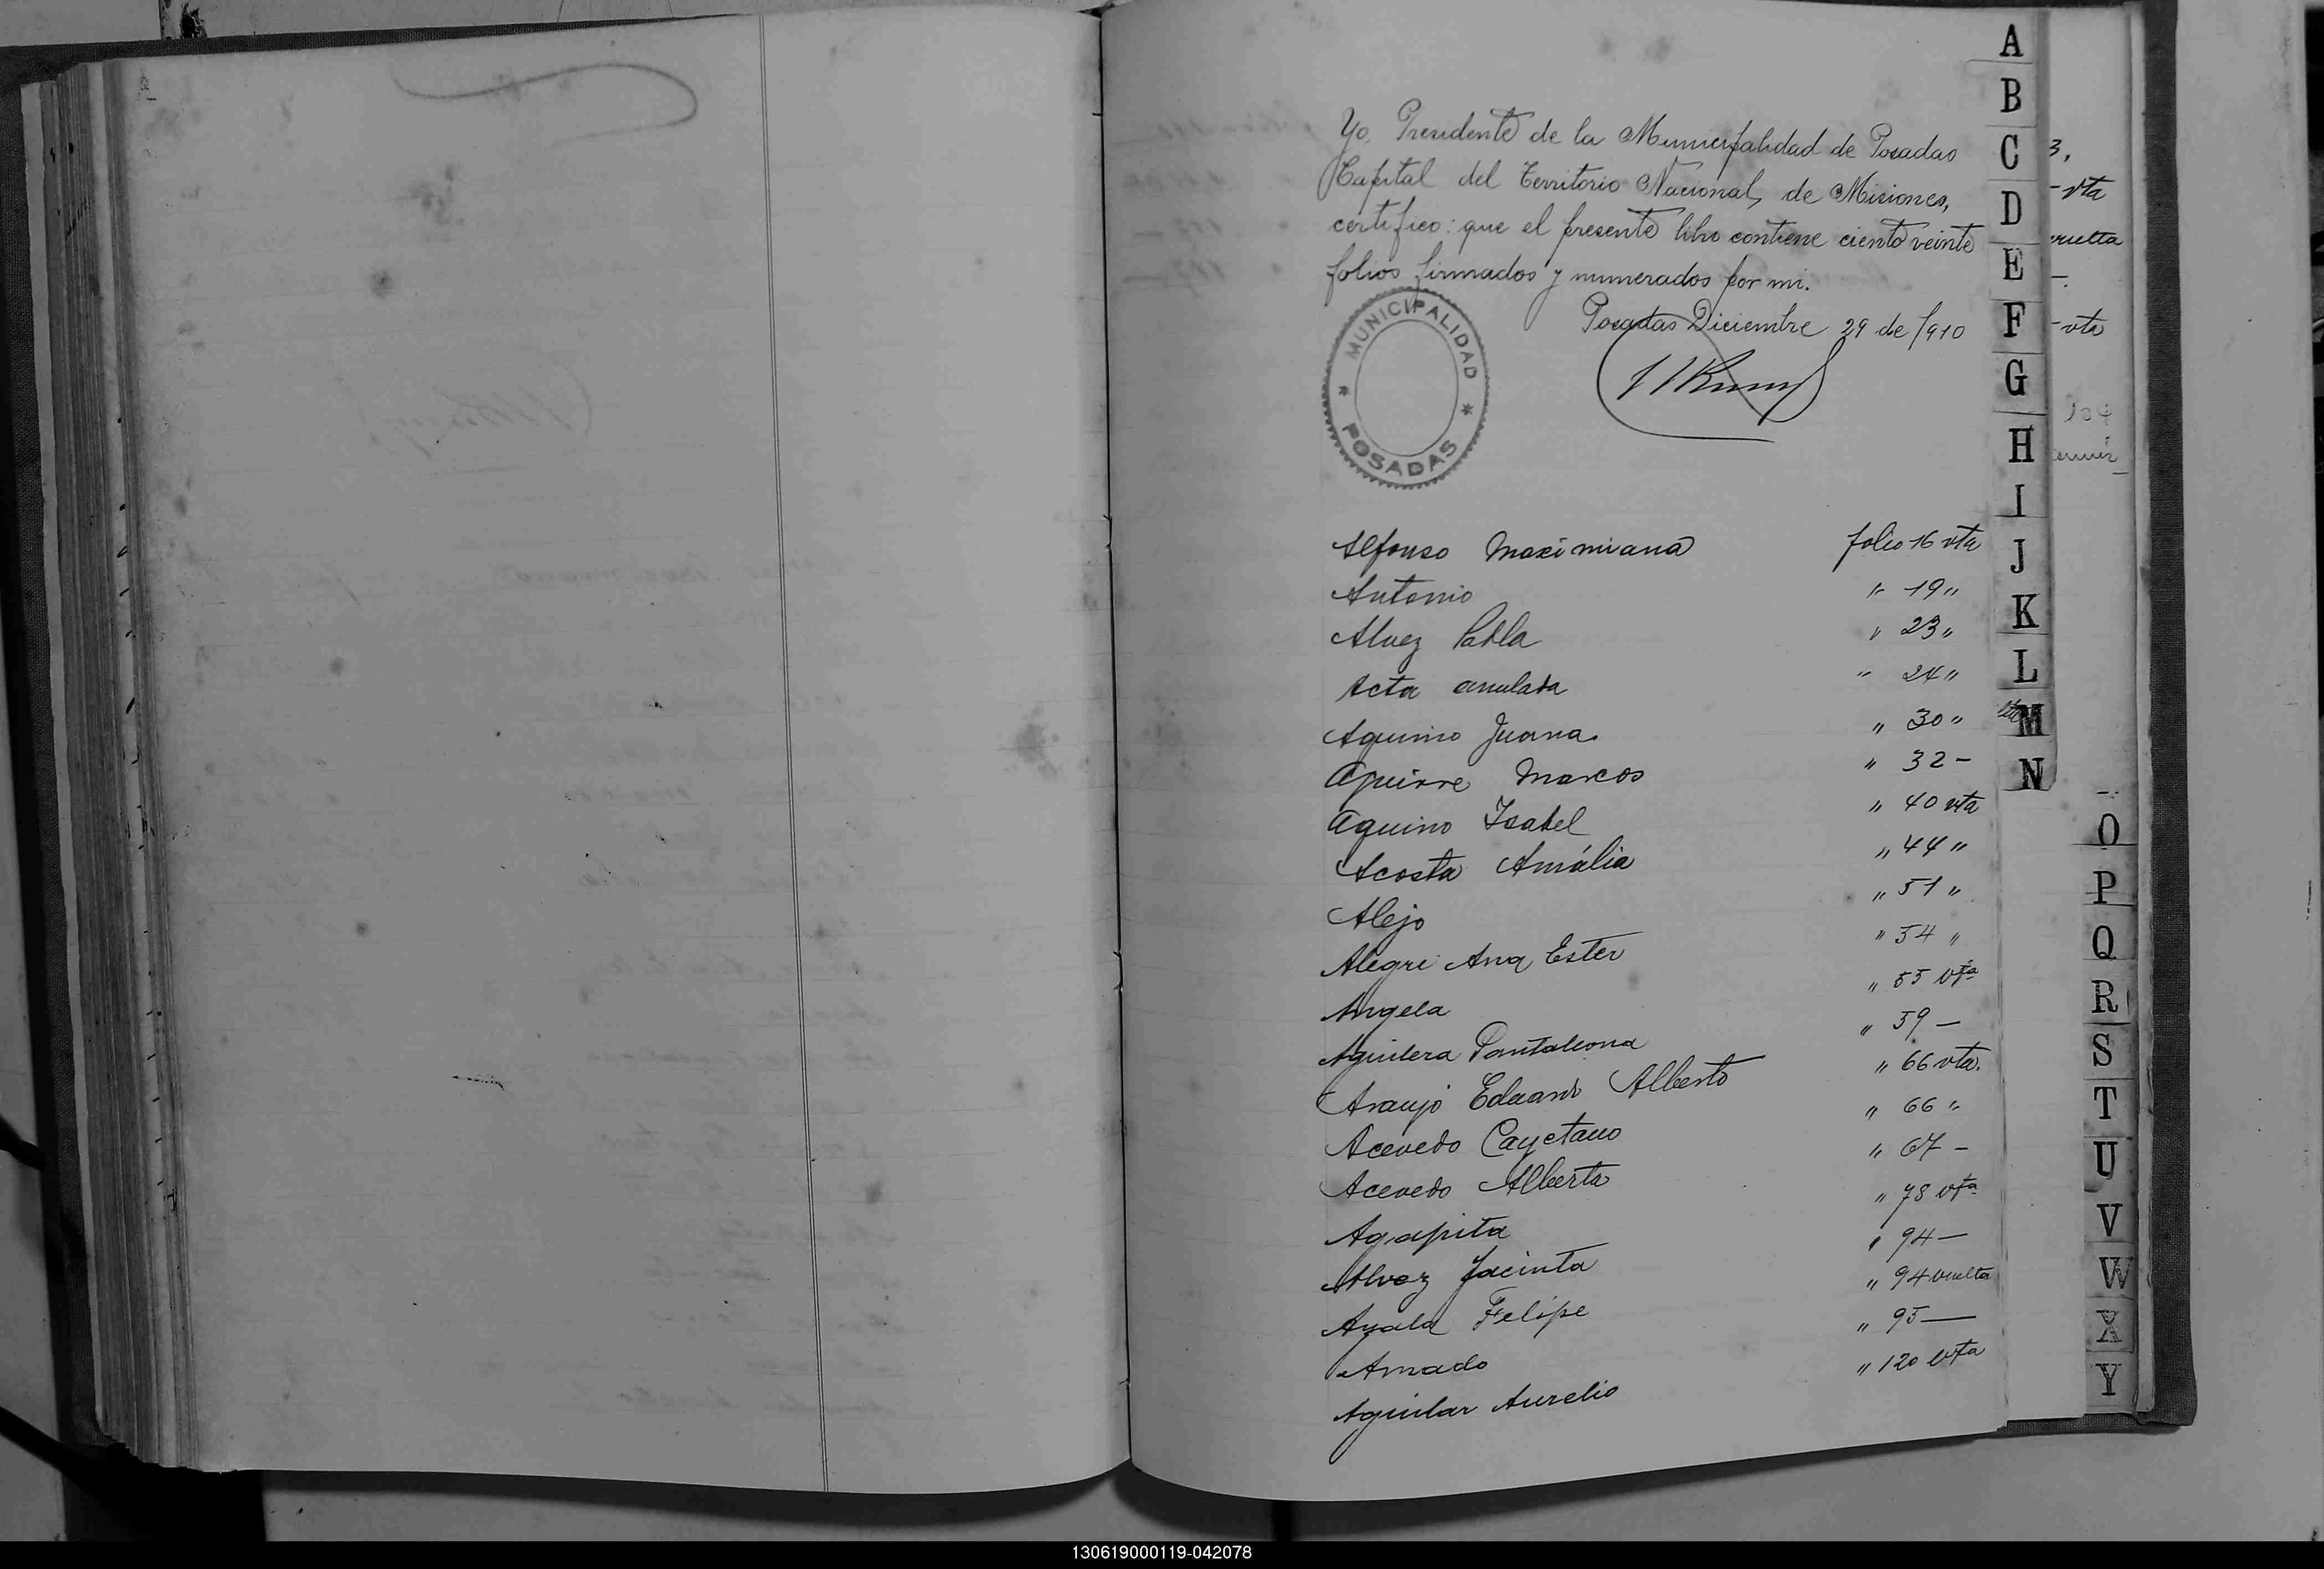 Yo, Presidente de la Municipalidad de Posadas
Capital del Territorio Nacional, de Misiones,
certifico: que el presente libro contiene ciento veinte
folios firmados y numerados por mi.
Posadas Diciembre 29 de 1910
MUNICIPALIDAD
POSADAS
Alfonso Maximiana folio 16 vta
Antonio " 19 "
Alvez Pabla " 23 "
Acta anulada " 24 "
Aquino Juana. " 30 "
Aguirre Marcos " 32 -
Aquino Isabel " 40 vta
Acosta Amália " 44 "
Alejo " 51 "
Alegre Ana Ester " 54 "
Angela " 55 vta
Aguilera Pantaleona " 59 -
Araujo Eduardo Alberto " 66 vta.
Acevedo Cayetano " 66 "
Acevedo Alberta " 67 -
Agapita " 78 vta
Alvez Jacinta " 94 -
Ayala Felipe " 94 vuelta
Amado " 95 -
Aguilar Aurelio " 120 vta
A
B
C
D
E
F
G
H
I
J
K
L
M
N
O
P
Q
R
S
T
U
V
W
X
Y
3,
- vta
vuelta
-
- vta
130619000119-042078